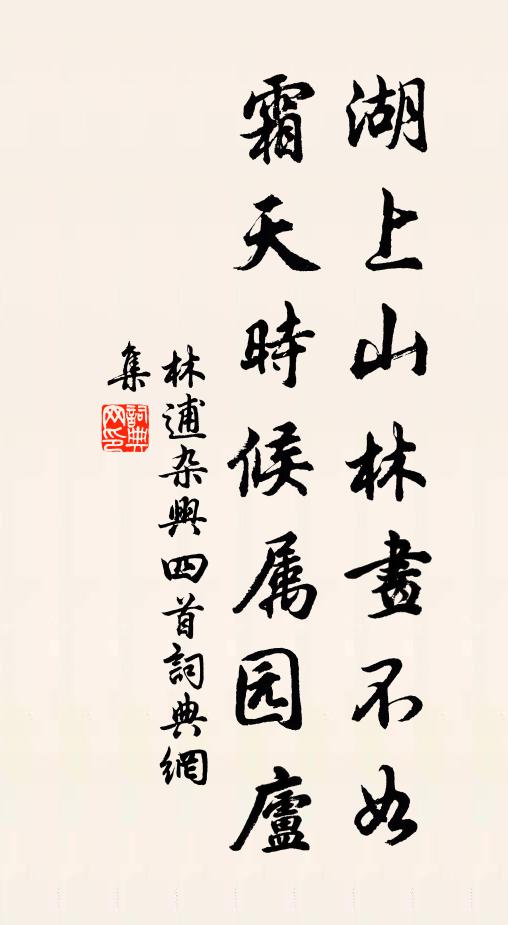 湖上山林畫不如
霜天時候属园廬
林逋杂興四首詞典網
集
詞典网印